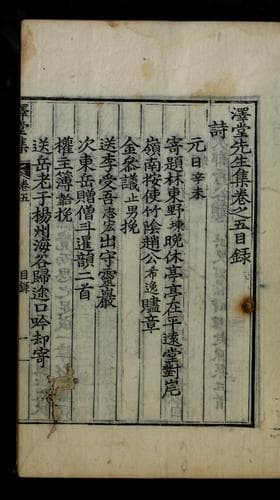 澤堂先生集卷之五目録
詩
元日辛未
寄題林東野埬晚休亭亭在平遠堂對岸
嶺南按使竹陰趙公希逸贐章
金參議止男挽
送李受吾惠宏出守靈巖
次東岳贈僧斗暹韻二首
權主簿韐挽
送岳老于楊州海谷歸途口吟却寄
澤堂集
卷五
目録
一